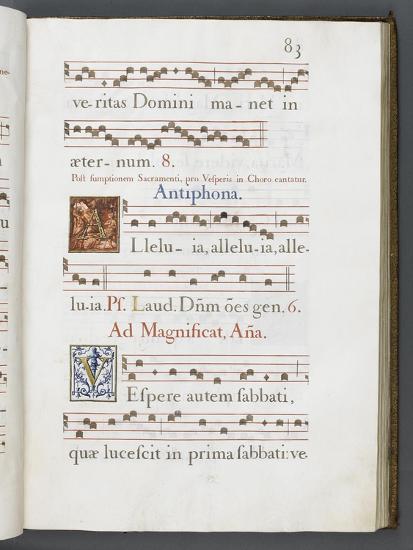 83
ve-ritas Domini ma-net in
æter-num. 8.
Poſt ſumptionem Sacramenti, pro Veſperis in Choro cantatur.
Antiphona.
A Llelu-ia, allelu-ia, alle-
lu-ia. Pſ. Laud. Dñm oẽs gen. 6.
Ad Magnificat, Aña.
V Eſpere autem ſabbati,
quæ luceſcit in prima ſabbati: ve-